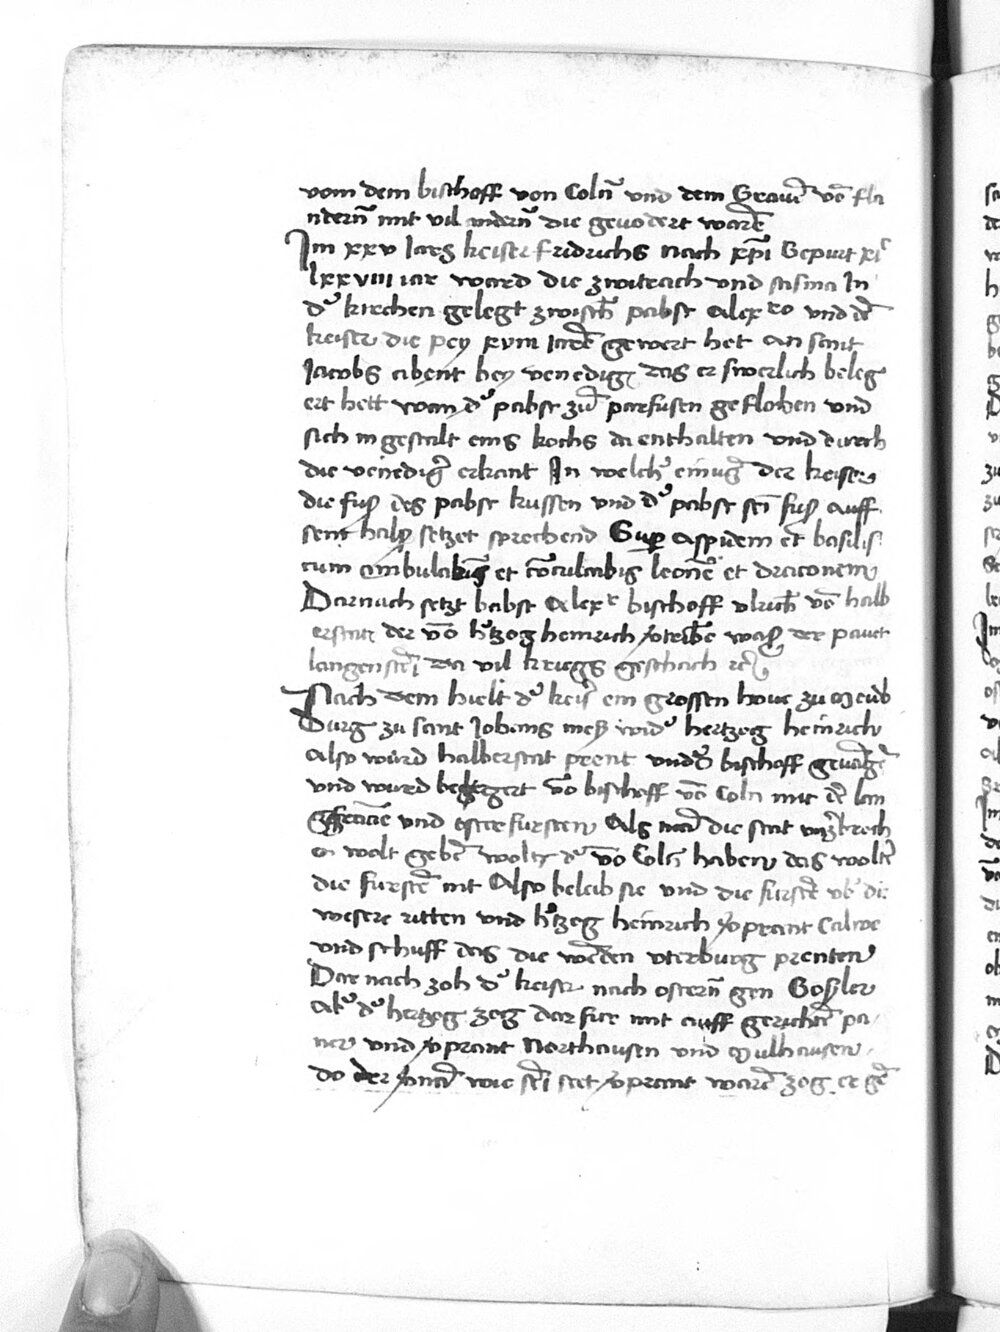 vom dem bischoff von Coln̄ vnd dem Grauē vō fla
ndern̄ mit vil andern̄ die gevodert warē
Im xxv Iares keiser fridrichs nach xp̄i Gepurt xiᶜ
lxxviii iar ward die zwitrach vnd scisma In
dʼ kirchen gelegt zwischn̄ pabst Alexʳᵒ vnd dē
keiser die pey xviii Iarē gewert het an sant
Jacobs abent bey venedig das er swerlich beleg
ert hett wan dʼ pabst zū parfusen geflohen vnd
sich in gestalt eins kochs da enthalten vnd durch
die venedigʼ erkant In welchʼ einugʼ der keiser
die fuß des pabst kussen vnd dʼ pabst sein̄ fuß auff
sein halß setzet sprechend Sup aspidem et basilis
cum ambulabis et cōculcabis leonē et draconem
Darnach setzt babst Alexʳ bischoff vlrich vō halb
erstat der vō hʼtzog heinrich vtribē was der pawt
langenstei da vil kriegs geschach
Nach dem hielt dʼ keisʼ ein grossen hove zu Meid
burg zu sant Johans meß widʼ hertzog heinrich
Also ward halberstat prent vnd dʼ bischoff gevāgē
vnd ward belegert vō bischoff vō Coln mit dē lan
gfraue vnd ostre fursten Als man̄ die stat
walt gebē wolt dʼ vō Coln̄ haben das woltē
die furstē nit Also beleib sie vnd die furstē vbʼ die
wesere ritten vnd hʼtzog heinrich vprant Calwe
vnd schuff das die wērden vterburg prenten
Dar nach zoh dʼ keiser nach ostern̄ gen Goßler
Abʼ dʼ hertzog zog darfur mit auff gerichtē pa
ner vnd vprant Northausen vnd Mulhausen
do der wie sei stet vprant warē zog er gē